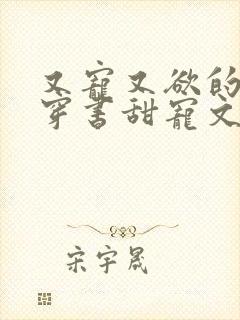 又寵又欲的
穿书甜寵文
宋宇晟